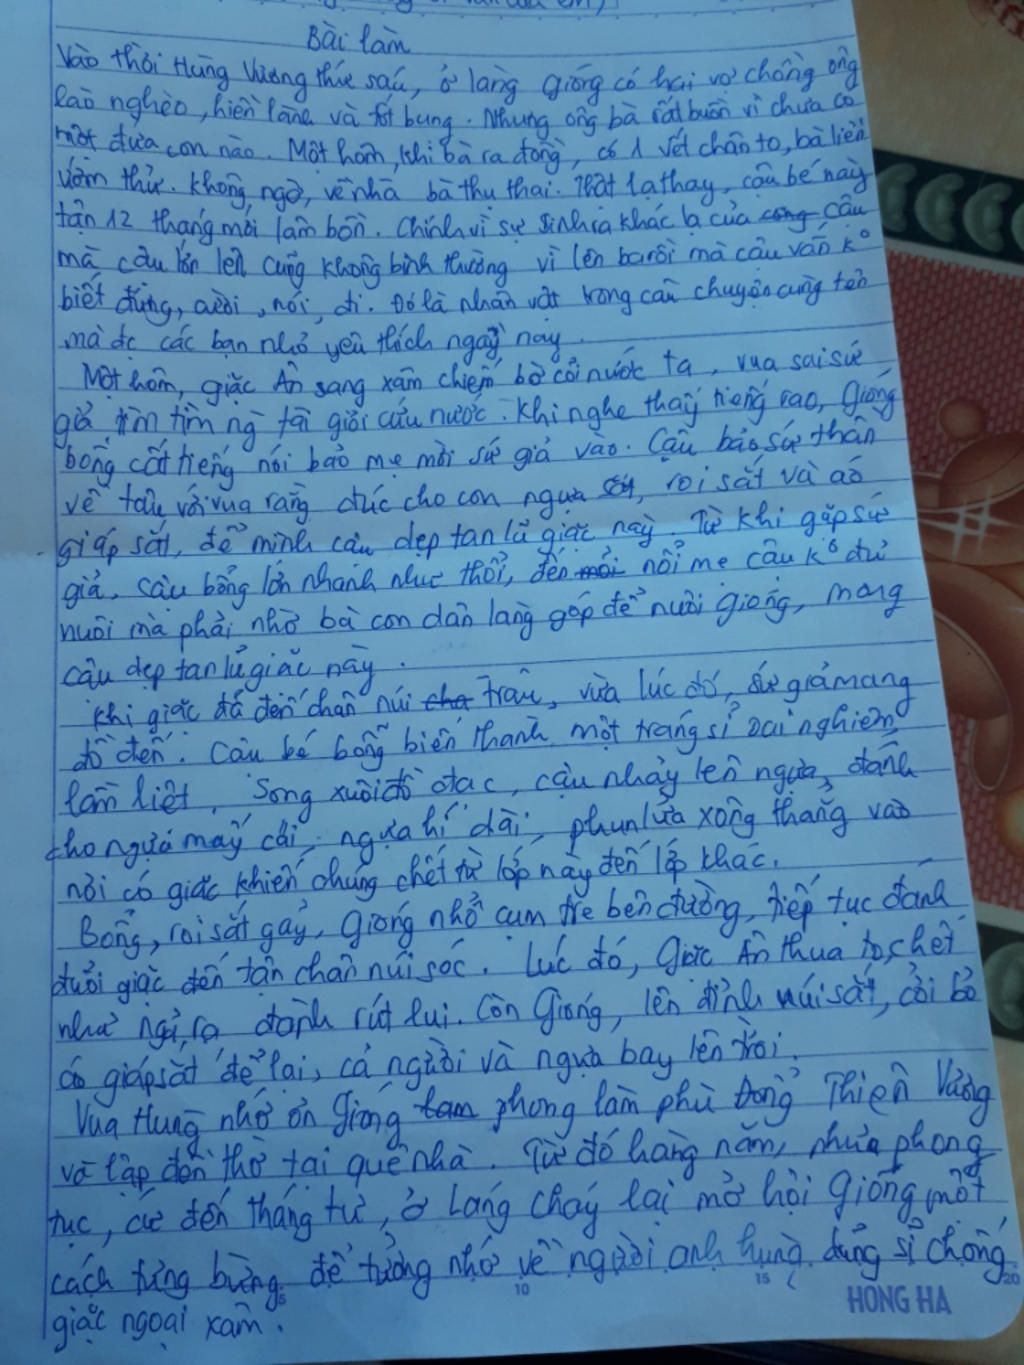 Bài làm
Vào thời Hùng Vương thứ sáu, ở làng Gióng có hai vợ chồng ông
lão nghèo, hiền lành và tốt bụng. Nhưng ông bà rất buồn vì chưa có
một đứa con nào. Một hôm, khi bà ra đồng, có 1 vết chân to, bà liền
ướm thử. Không ngờ, về nhà bà thụ thai. Thật lạ thay, cậu bé này
tận 12 tháng mới lâm bồn. Chính vì sự sinh ra khác lạ của cậu
mà cậu lớn lên cũng không bình thường vì lên ba rồi mà cậu vẫn kº
biết đứng, cười, nói, đi. Đó là nhân vật trong câu chuyện cùng tên
mà đc các bạn nhỏ yêu thích ngày nay.
Một hôm, giặc Ân sang xâm chiếm bờ cõi nước ta, vua sai sứ
giả tìm ng tài giỏi cứu nước. Khi nghe thấy tiếng rao, Gióng
bỗng cất tiếng nói bảo mẹ mời sứ giả vào. Cậu bảo sứ thần
về tâu với vua rằng đúc cho con ngựa, roi sắt và áo
giáp sắt, để mình cậu dẹp tan lũ giặc này. Từ khi gặp sứ
giả, cậu bỗng lớn nhanh như thổi, đến nỗi mẹ cậu kº đủ
nuôi mà phải nhờ bà con dân làng góp để nuôi Gióng, mong
cậu dẹp tan lũ giặc này.
Khi giặc đã đến chân núi Trâu, vừa lúc đó, sứ giả mang
đồ đến. Cậu bé bỗng biến thành một tráng sĩ oai nghiêm,
lẫm liệt. Song xuôi đồ đạc, cậu nhảy lên ngựa, đánh
cho ngựa mấy cái, ngựa hí dài, phun lửa xông thẳng vào
nơi có giặc khiến chúng chết từ lớp này đến lớp khác.
Bỗng, roi sắt gãy, Gióng nhổ cụm tre bên đường, tiếp tục đánh
đuổi giặc đến tận chân núi Sóc. Lúc đó, giặc Ân thua to, chết
như ngả rạ đành rút lui. Còn Gióng, lên đỉnh núi sắt, cởi bỏ
áo giáp sắt để lại, cả người và ngựa bay lên trời.
Vua Hùng nhớ ơn Gióng phong làm phù Đổng Thiên Vương
và lập đền thờ tại quê nhà. Từ đó hàng năm, như phong
tục, cứ đến tháng tư, ở Làng Cháy lại mở hội Gióng một
cách tưng bừng để tưởng nhớ về người anh hùng dũng sĩ chống
giặc ngoại xâm.
5 10 15 20
HONG HA